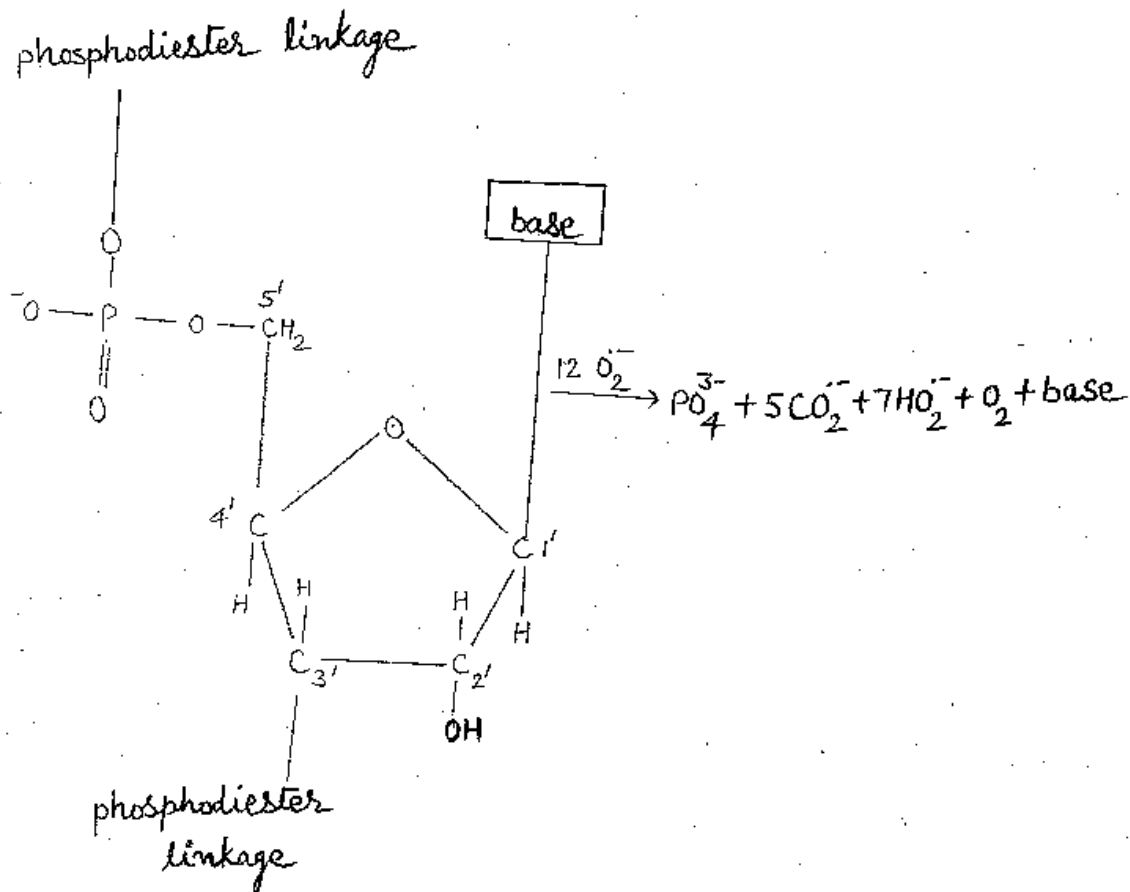 phosphodiester linkage
O
base
⁻O — P — O — CH₂
5'
O
12 O₂˙⁻
→ PO₄³⁻ + 5CO₂˙⁻ + 7HO₂˙⁻ + O₂ + base
O
4' C
C 1'
H
H
H
H
C₃'
C₂'
OH
phosphodiester
linkage